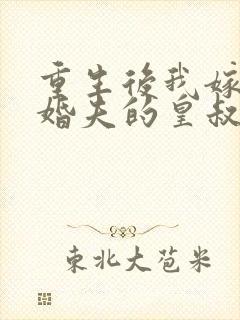 重生後我嫁
婚夫的皇叔
東北大苞米